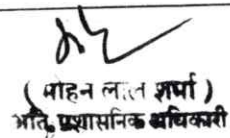 ( मोहन लाल शर्मा )
अति. प्रशासनिक अधिकारी